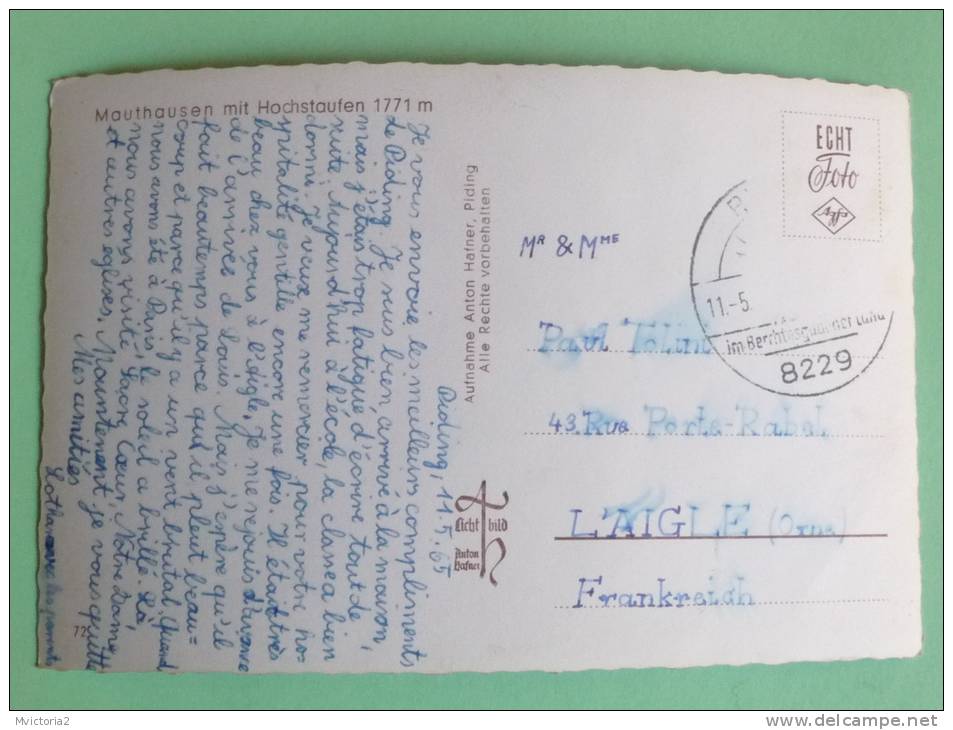 Mauthausen mit Hochstaufen 1771 m
Piding, 11.5.65
Je vous envoie les meilleurs compliments
de Piding. Je suis bien arrivé à la maison,
mais j'étais trop fatigué d'écrire tout de
suite. Aujourd'hui à l'école, la classe a bien
dormi. Je veux me remercier pour votre ho-
spitalité gentille encore une fois. Il était très
beau chez vous à l'Aigle. Je me rejouis d'avance
de l'arrivée de Louis. Mais j'espère qu'il
fait beau temps parce qu'il pleut beau=
coup et parce qu'il y a un vent brutal. Quand
nous avons été à Paris, le soleil a brillé. Là
nous avons visité Sacré Cœur, Notre Dame
et autres églises. Maintenant je vous quitte
Mes amitiés
Lothar
72
Aufnahme Anton Hafner, Piding
Alle Rechte vorbehalten
Licht bild
Anton
Hafner
ECHT
Foto
Agfa
11.-5.
im Berchtesgadener Land
8229
Mr & Mme
Paul Tolint
43. Rue Porte-Rabel
L'AIGLE (Orne)
Frankreich
Mvictoria2
delcampe.net